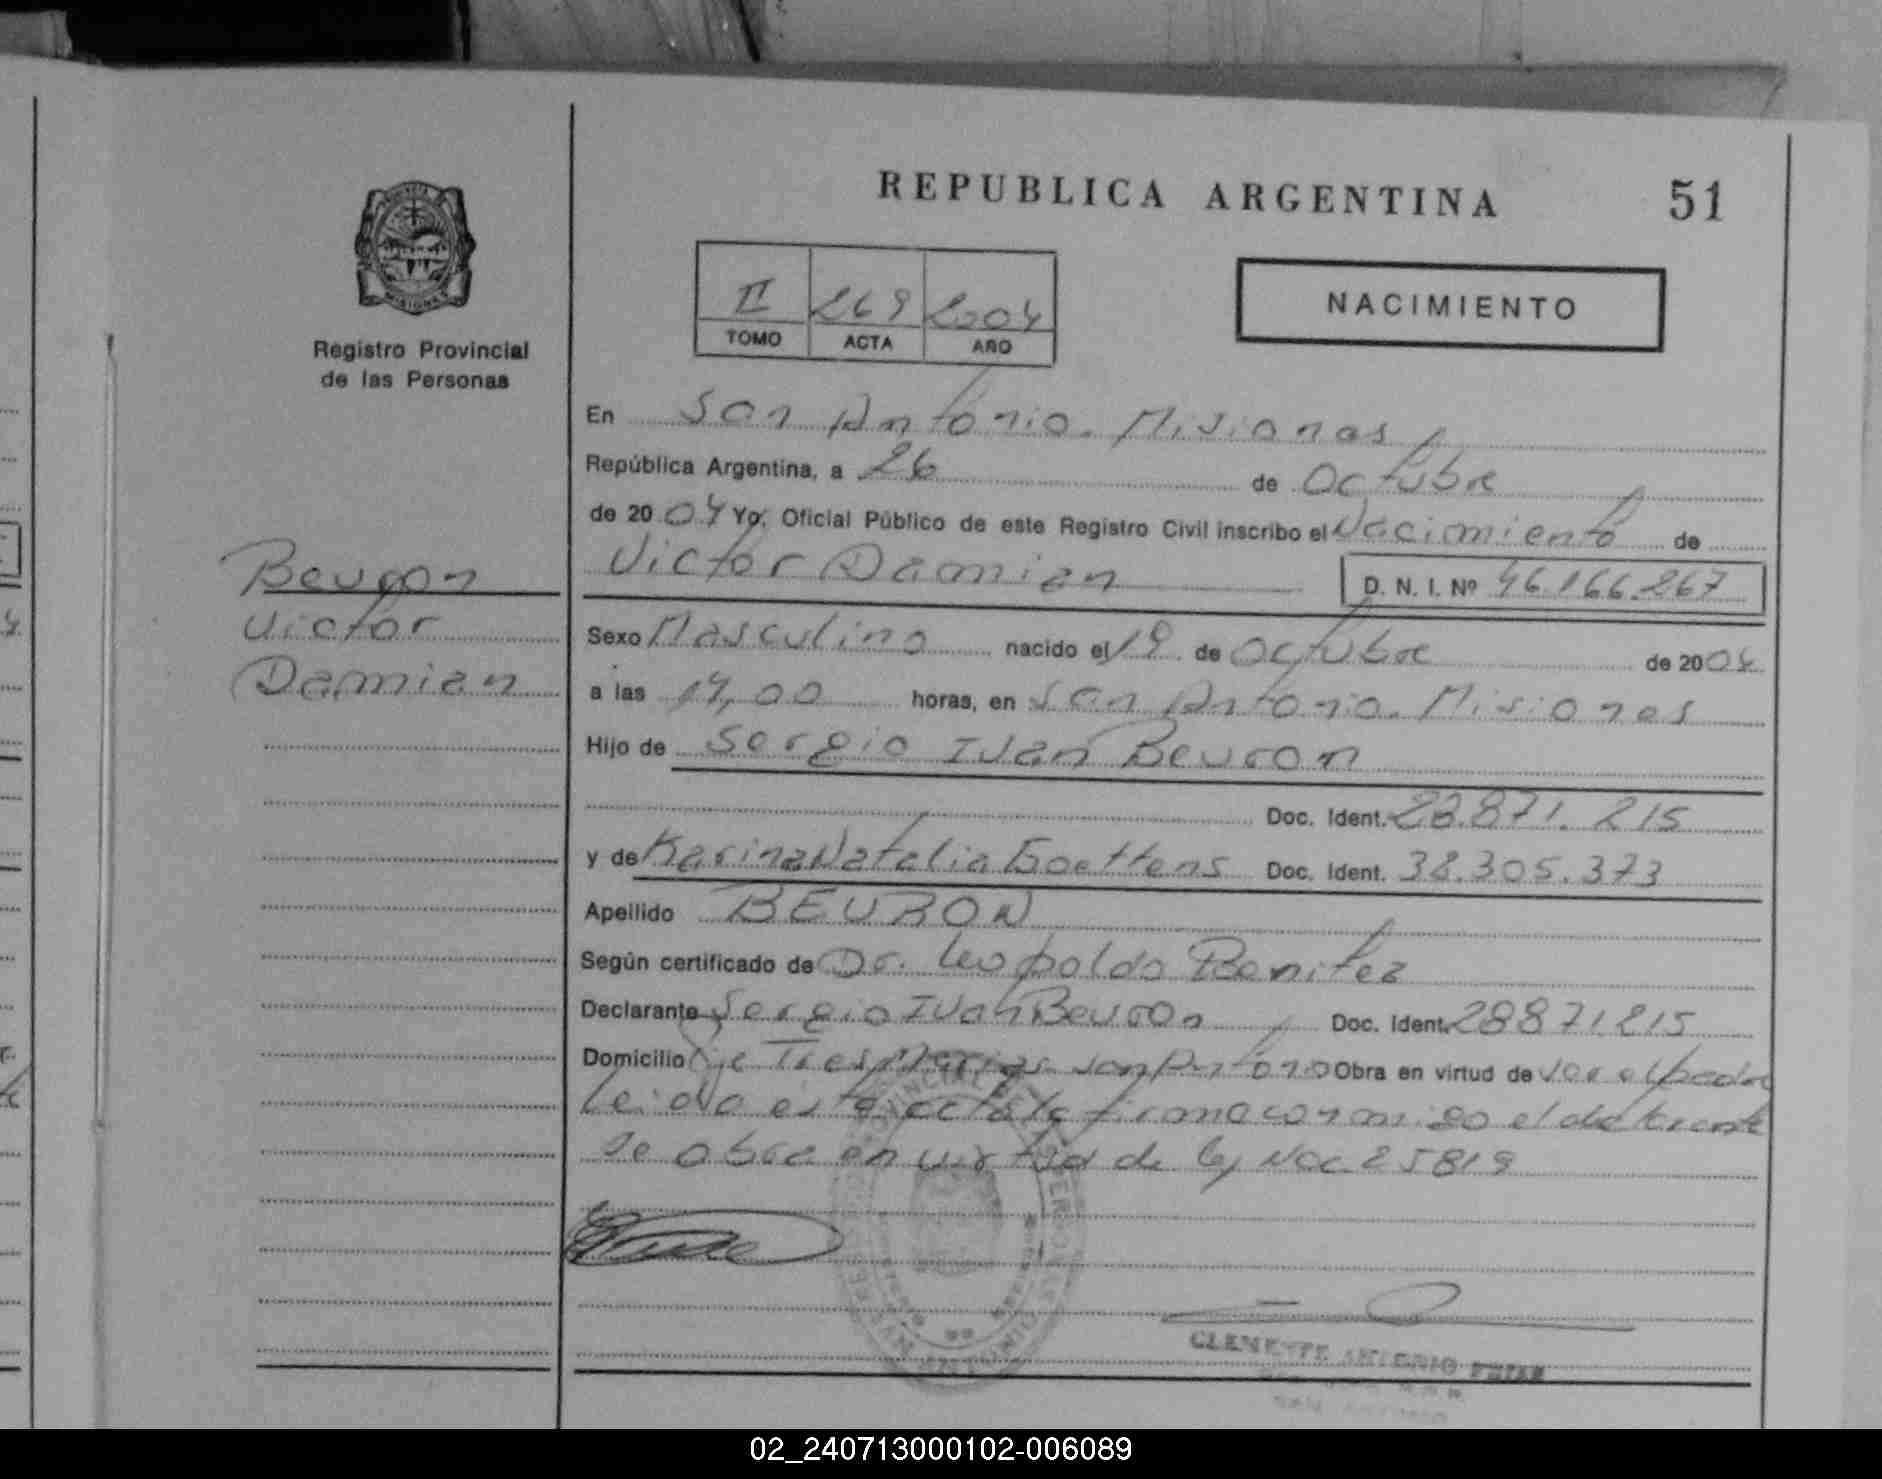 REPUBLICA ARGENTINA
51
MISIONES
Registro Provincial
de las Personas
II 269 2004
TOMO ACTA AÑO
NACIMIENTO
En San Antonio. Misiones
República Argentina, a 26 de Octubre
de 2004 Yo, Oficial Público de este Registro Civil inscribo el Nacimiento de
Victor Damian D. N. I. Nº 46.166.267
Beuron
Victor
Damian
Sexo Masculino nacido el 19 de Octubre de 2004
a las 14,00 horas, en San Antonio. Misiones
Hijo de Sergio Ivan Beuron
Doc. Ident. 28.871.215
y de Karina Natalia Goettens Doc. Ident. 38.305.373
Apellido BEURON
Según certificado de Dr. Leopoldo Benitez
Declarante Sergio Ivan Beuron Doc. Ident. 28871.215
Domicilio Tres Marias San Antonio Obra en virtud de ser el padre
Leida esta acta la firma conmigo el declarante
se obra en virtud de ley Nac. 25819
CLEMENTE ANTONIO
SAN ANTONIO
02_240713000102-006089